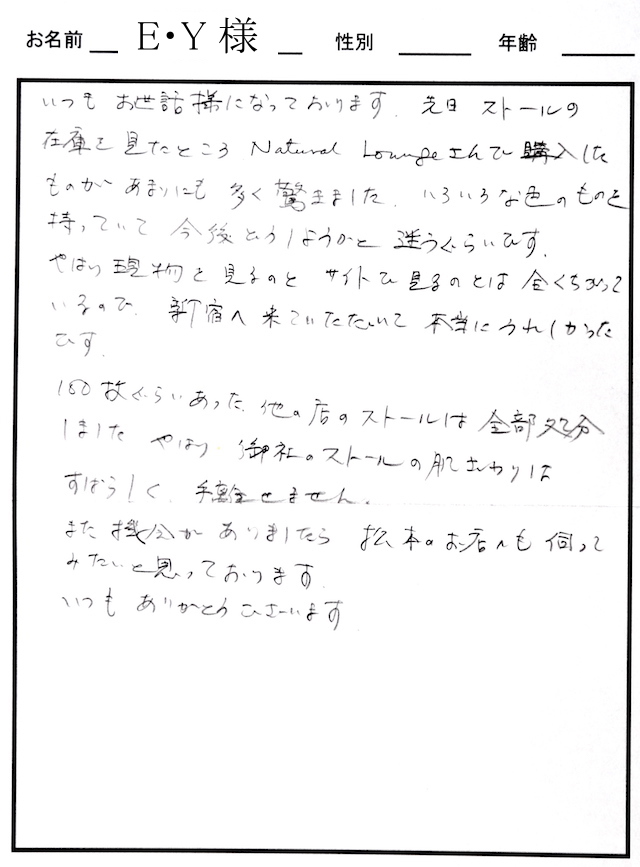 お名前 E・Y 様 性別 年齢
いつも お世話様になっております。先日 ストールの
在庫を見たところ Natural Loungeさんで購入した
ものが あまりにも 多く驚きました。いろいろな色のものを
持っていて 今後どうしようかと 迷うぐらいです。
やはり現物を見るのと サイトで見るのとは 全くちがって
いるので、新宿へ 来ていただいて 本当にうれしかった
です。
100枚ぐらいあった、他の店のストールは 全部処分
しました やはり 御社のストールの肌ざわりは
すばらしく、手離せません。
また 機会が ありましたら 松本のお店へも 伺って
みたいと思っております。
いつも ありがとうございます